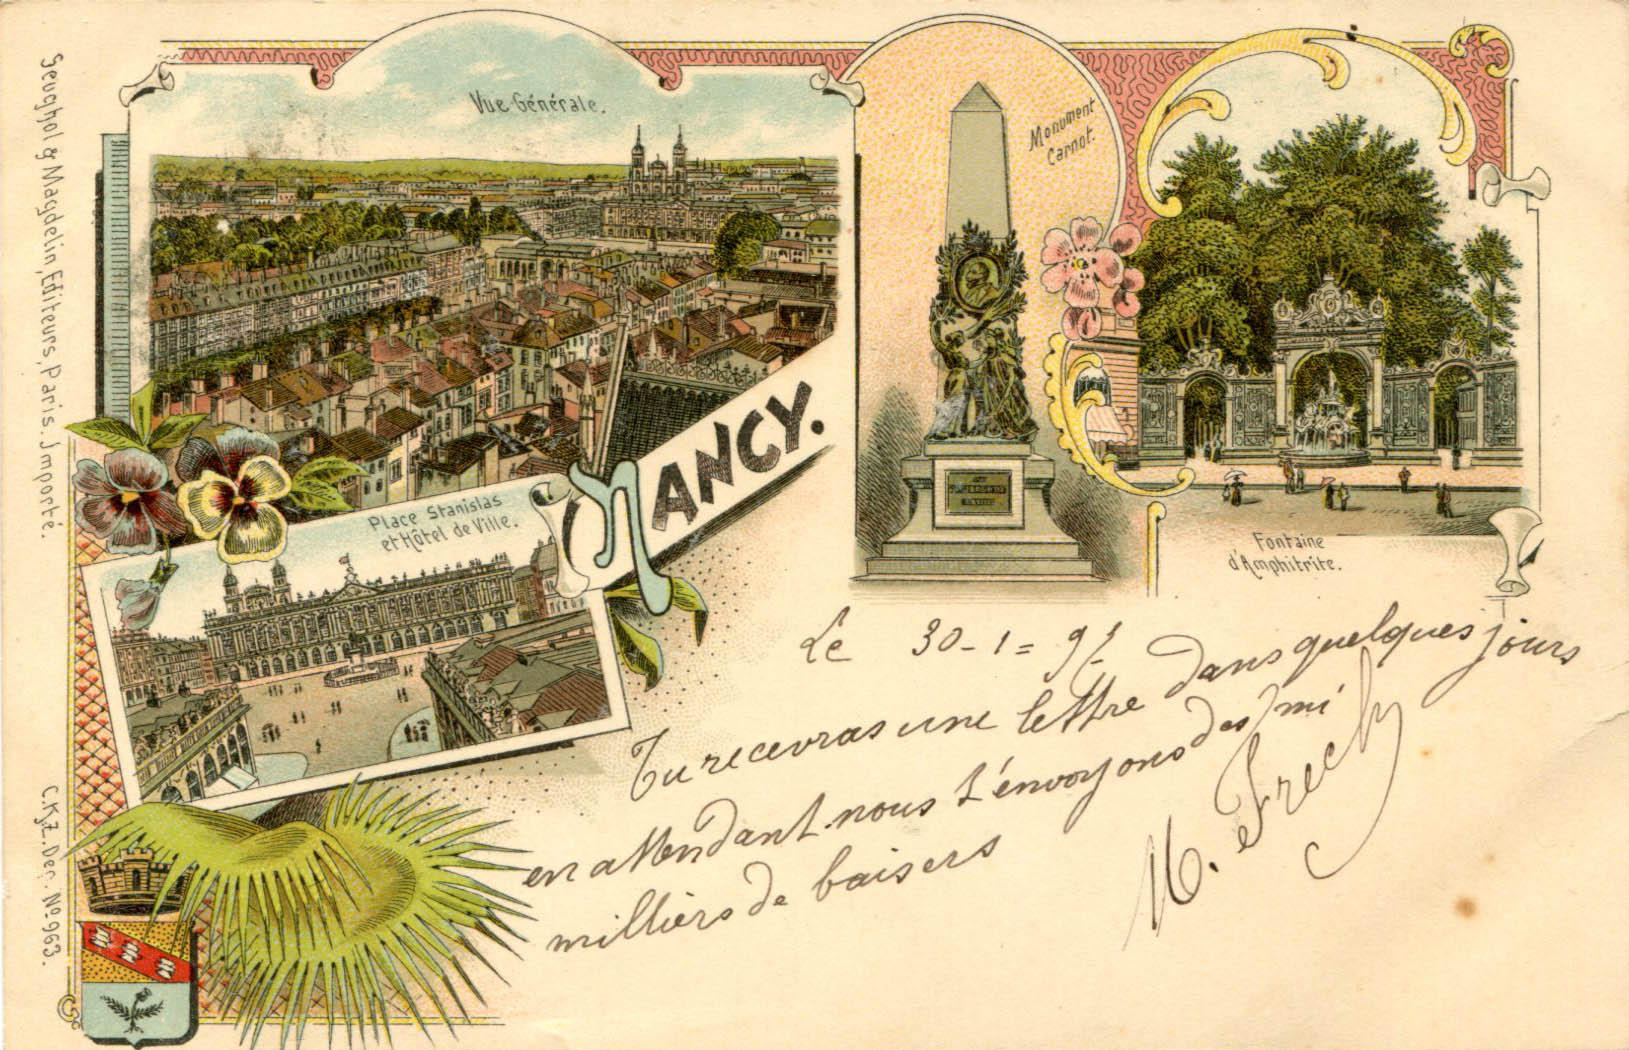 Geughol & Magdelin, Editeurs, Paris. Importé.
C.K.Z. Dep. No 963.
Vue Générale.
Monument
Carnot.
NANCY.
Place Stanislas
et Hôtel de Ville.
Fontaine
d'Amphitrite.
Le 30-1=9
Tu recevras une lettre dans quelques jours
en attendant nous t'envoyons des mi
milliers de baisers
M. Frech